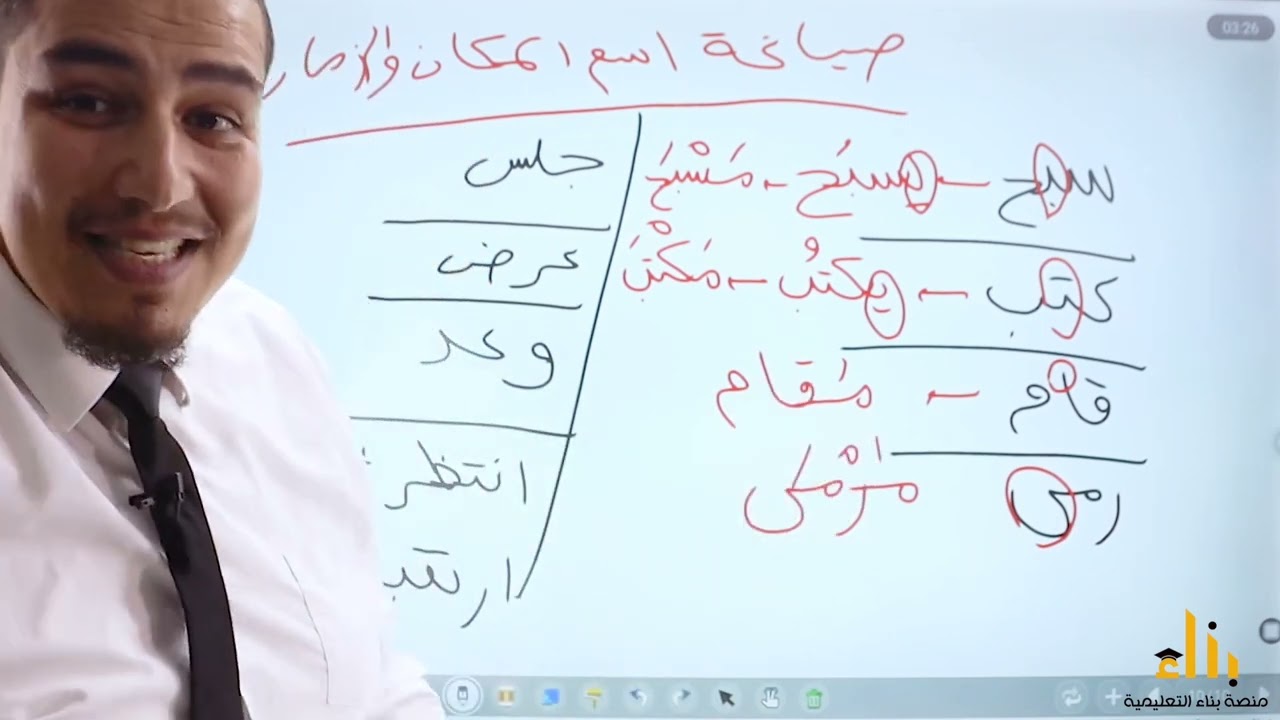 03:26
صياغة اسم المكان والزمان
سبح - يسبح - مَسْبَح
كتب - يكتُب - مَكْتَب
قام - مَقام
رمى مَرْمى
جلس
عرض
وعد
انتظر
ارتقب
بناء
منصة بناء التعليمية